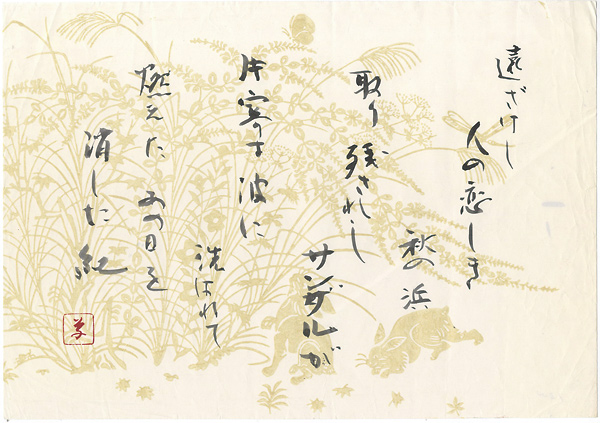 遠ざけし
人の恋しき
秋の浜
取り残されし
サンダルが
片寄す波に
洗はれて
燃えたあの日を
消した紅